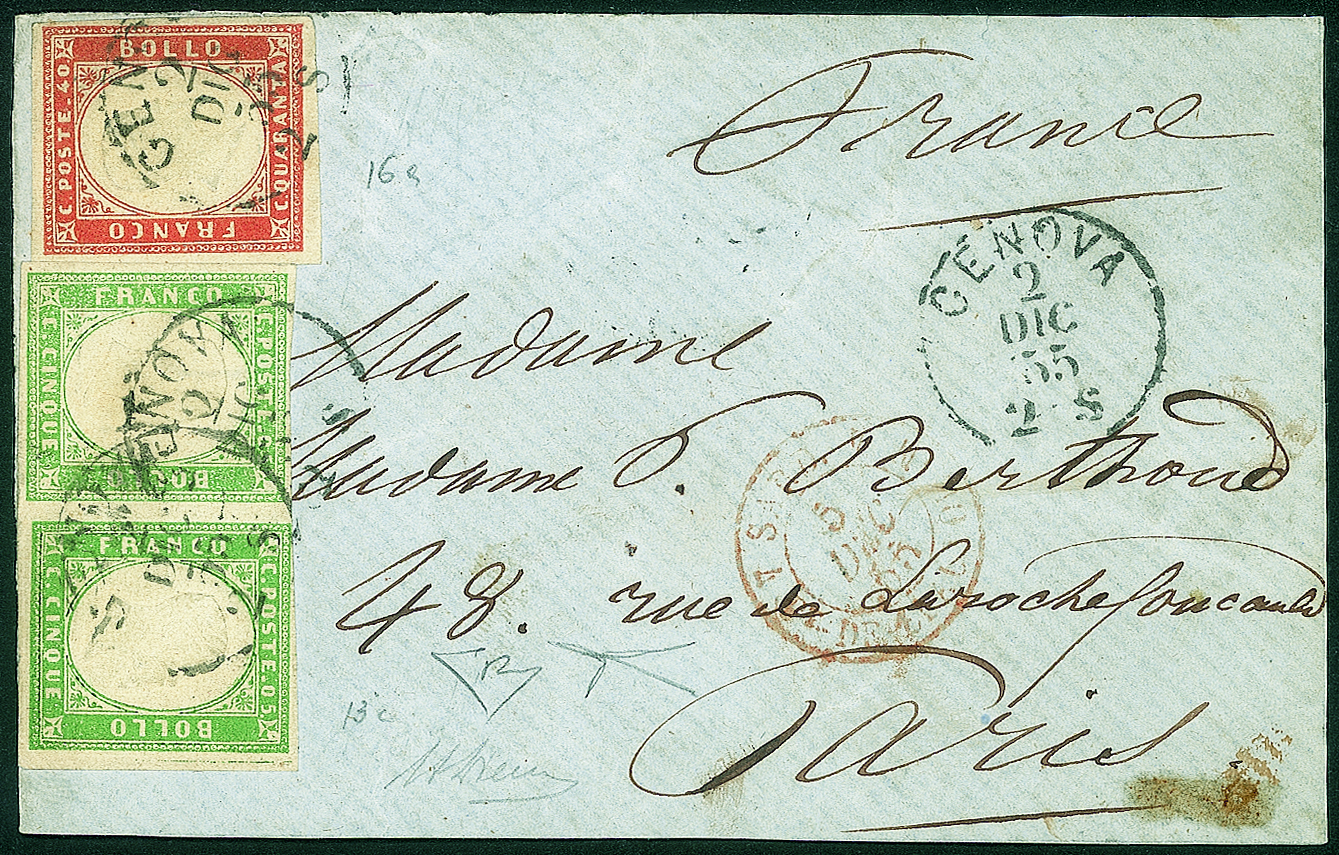 BOLLO
C. POSTE. 40
C. QUARANTA
FRANCO
GEN
2
DIC
55
2 S
16a
France
GENOVA
2
DIC
55
2 S
FRANCO
C. POSTE.
C. CINQUE
BOLLO
FRANCO
C. POSTE. 05
C. CINQUE
BOLLO
Madame
Madame S. Berthoud
5
DEC
55
48. rue de Larochefoucauld
Paris
13c